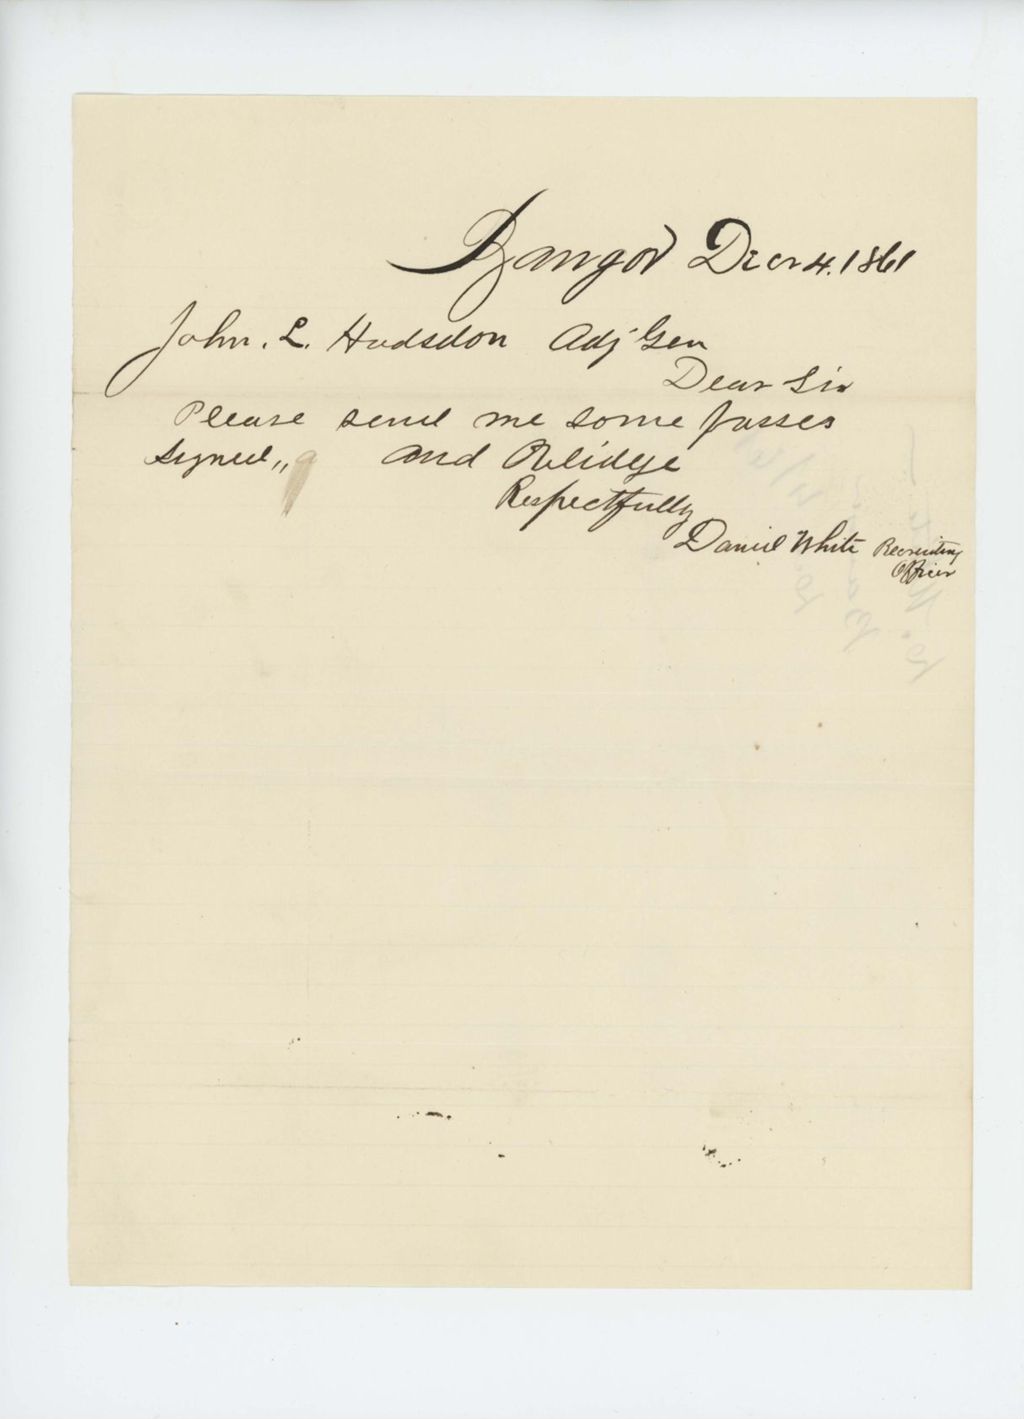 Bangor Decr 4. 1861
John. L. Hodsdon Adj Gen
Dear Sir
Please send me some passes
signed,, and Oblidge
Respectfully
Daniel White Recruiting
Officer